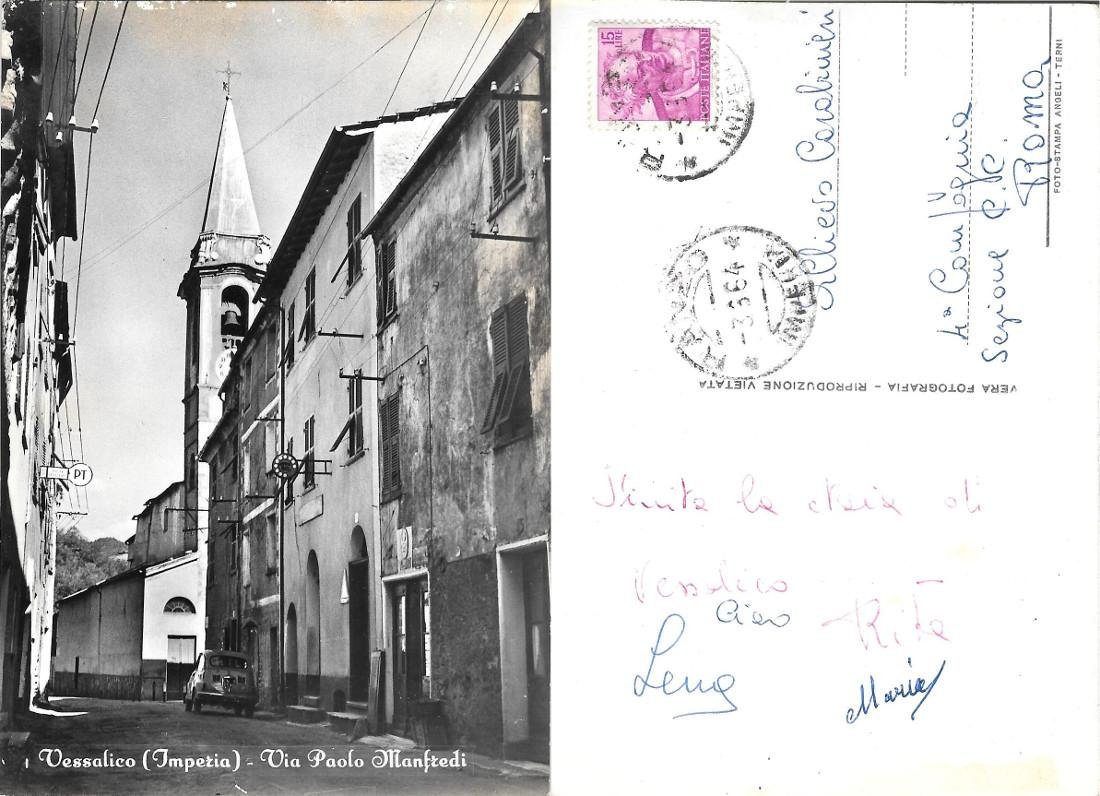 PT
Vessalico (Imperia) - Via Paolo Manfredi
15
LIRE
POSTE ITALIANE
IMPERIA
- 3.3.64
IMPERIA
Allievo Carabiniere
4ª Compagnia
Sezione P.C.
Roma
FOTO-STAMPA ANGELI - TERNI
VERA FOTOGRAFIA - RIPRODUZIONE VIETATA
la
di
Vessalico
Ciao
Rita
Lena
Maria